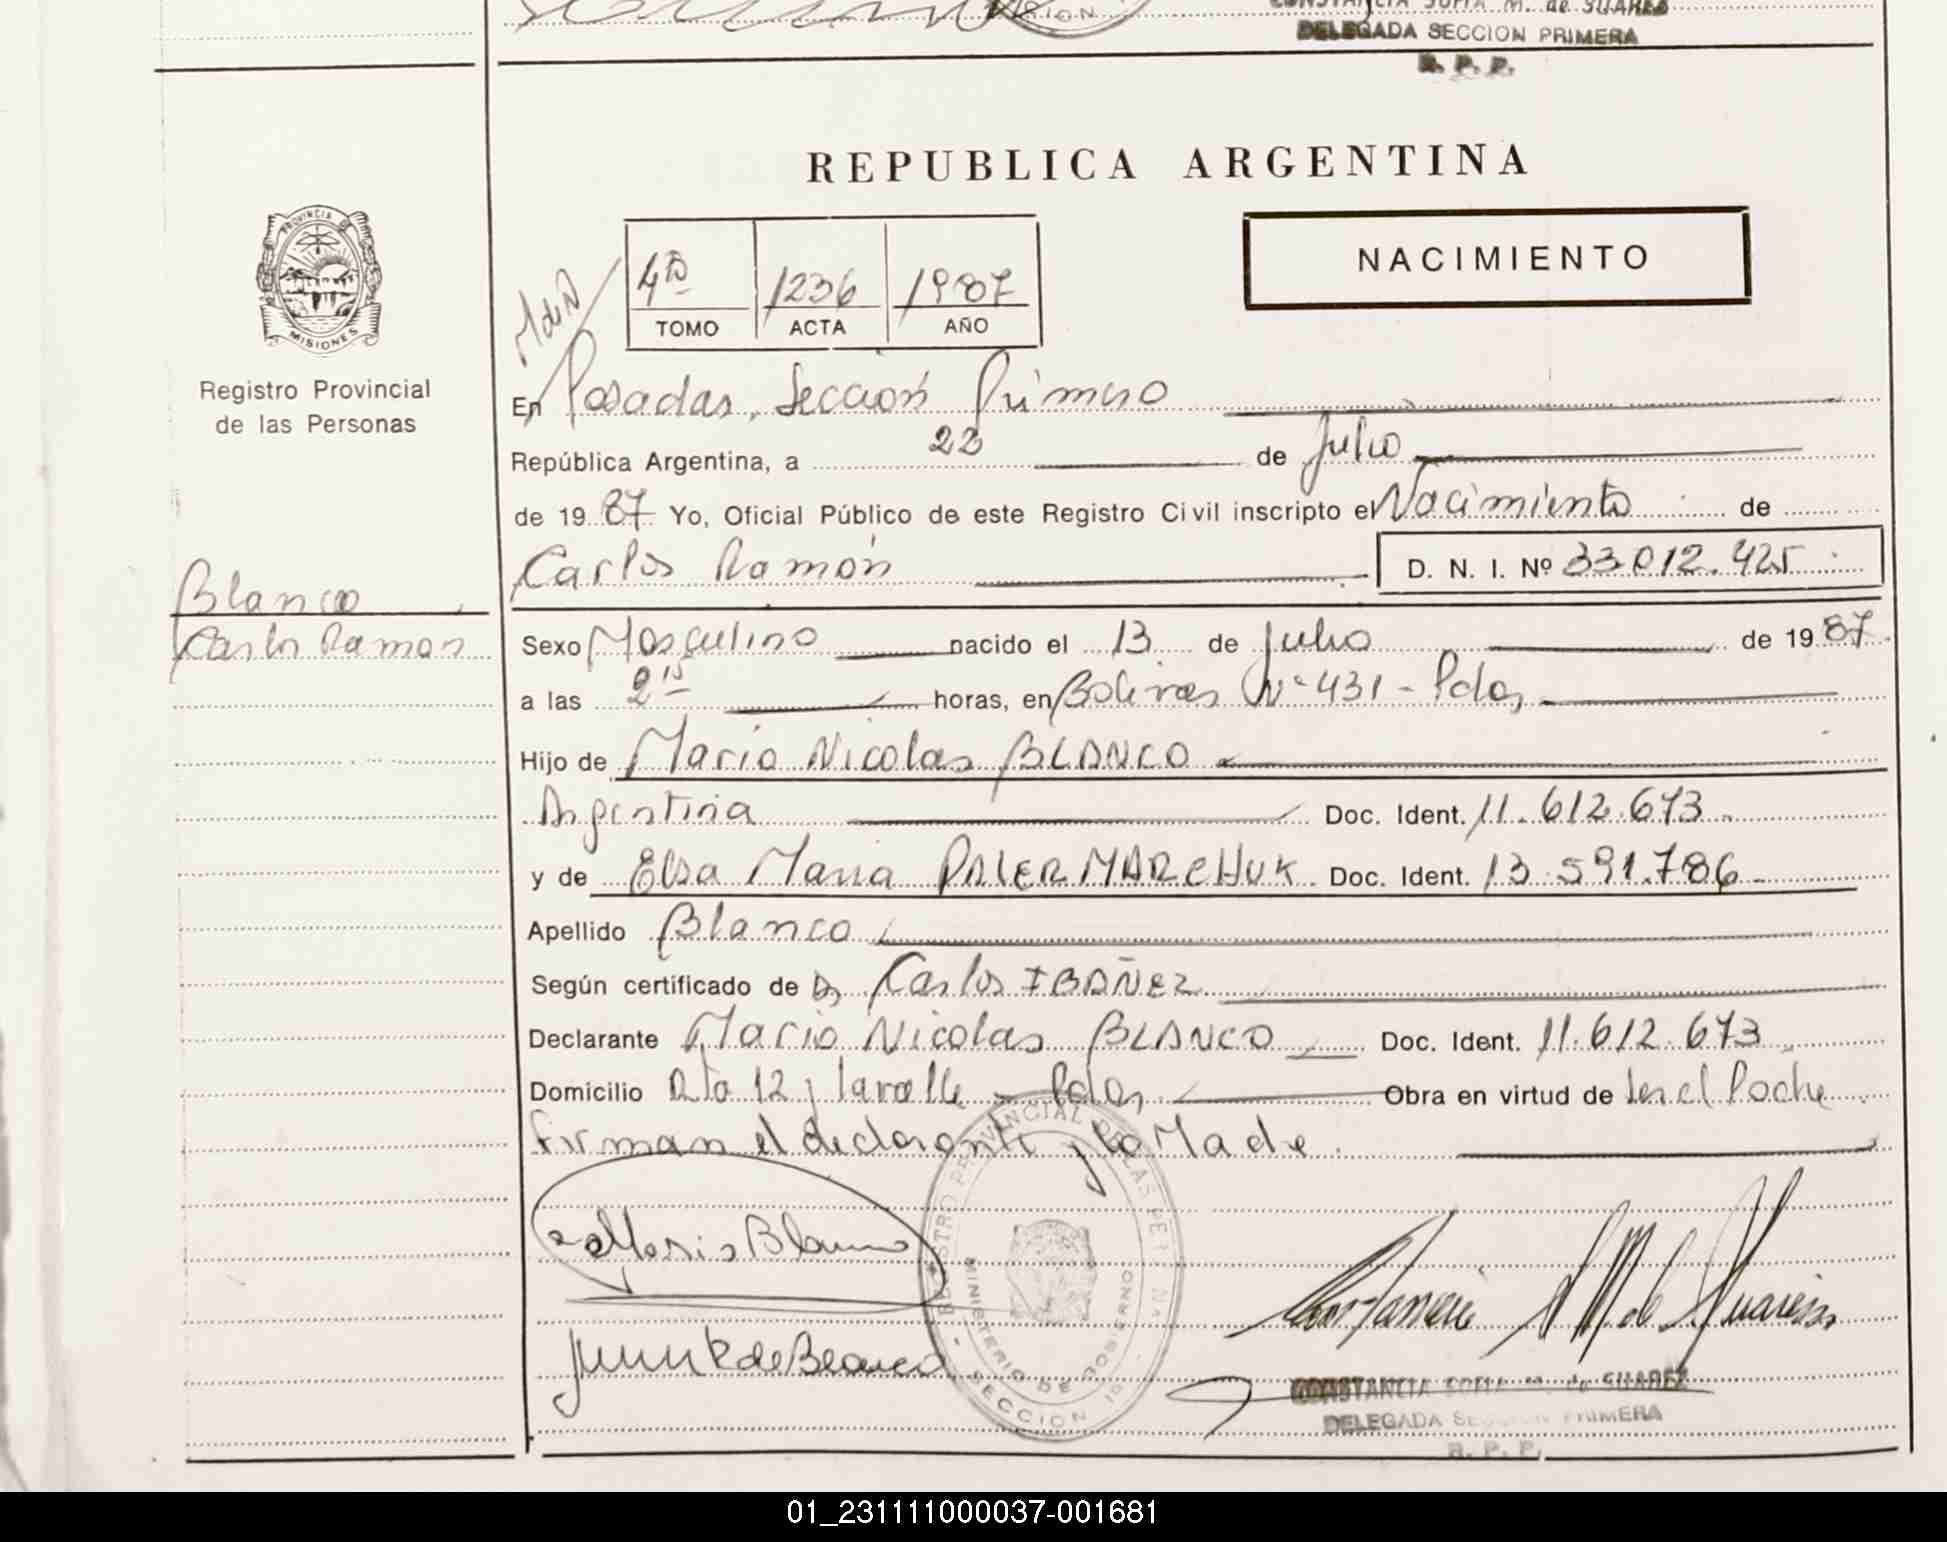 CONSTANCIA SOFIA M. de SUAREZ
DELEGADA SECCION PRIMERA
R. P. P.
REPUBLICA ARGENTINA
NACIMIENTO
PROVINCIA DE MISIONES
Registro Provincial
de las Personas
4to 1236 1987
TOMO ACTA AÑO
En Posadas, Sección Primera
República Argentina, a 22 de Julio
de 1987 Yo, Oficial Público de este Registro Civil inscripto el Nacimiento de
Carlos Ramón D. N. I. Nº 33.012.425
Blanco
Carlos Ramon
Sexo Masculino nacido el 13 de Julio de 1987
a las 2 15 horas, en Bolivar Nº 431 - Pdas
Hijo de Mario Nicolas BLANCO
Argentina Doc. Ident. 11.612.673
y de Elsa Maria Doc. Ident. 13.591.786
Apellido Blanco
Según certificado de Dr Carlos IBAÑEZ
Declarante Mario Nicolas BLANCO Doc. Ident. 11.612.673
Domicilio Rta 12 y Lavalle - Pdas Obra en virtud de ser el Padre
firman el declarante y la Madre
REGISTRO PROVINCIAL DE LAS PERSONAS
MINISTERIO DE GOBIERNO
- SECCION 1ª -
CONSTANCIA SOFIA M. de SUAREZ
DELEGADA SECCION PRIMERA
R. P. P.
01_231111000037-001681